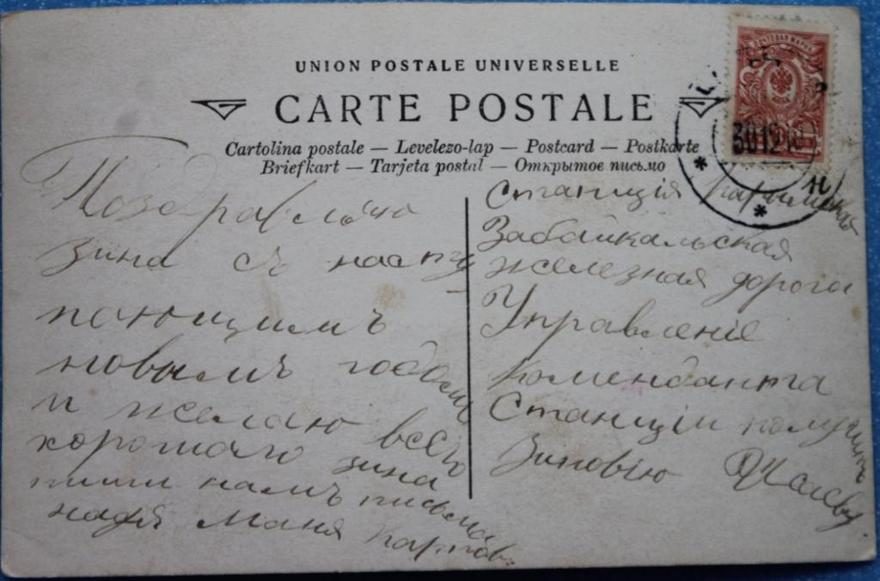 UNION POSTALE UNIVERSELLE
CARTE POSTALE
Cartolina postale — Levelezo-lap — Postcard — Postkarte
Briefkart — Tarjeta postal — Открытое письмо
ПОЧТОВАЯ МАРКА
30 12 1
Поздравляю
зина съ насту
пающимъ
новымъ годомъ
и желаю всего
хорошаго зина
пиши намъ письма
надя маня карпов
Станція Карымская
Забайкальская
железная дорога
Управленіе
коменданта
Станціи получить
Зиновію Исаеву